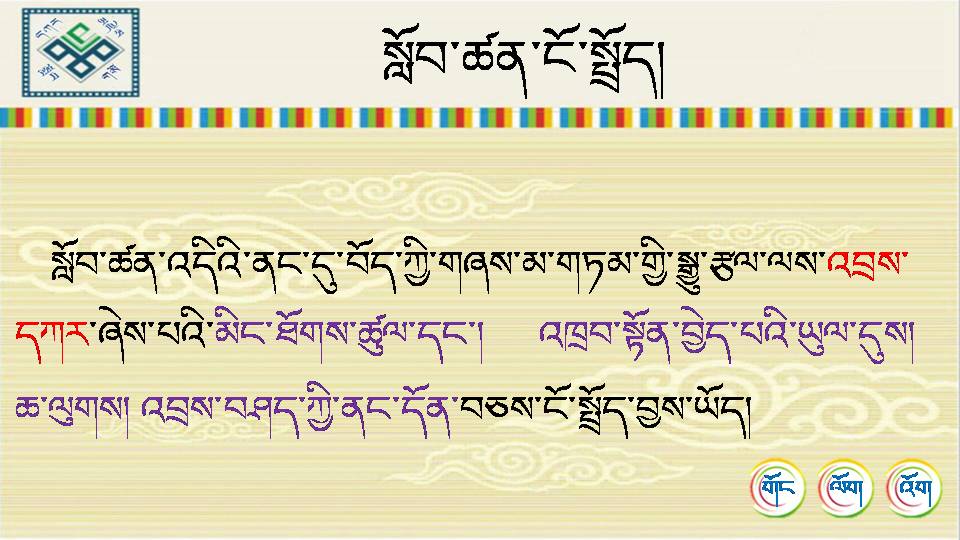 སློབ་ཚན་ངོ་སྤྲོད།
སློབ་ཚན་འདིའི་ནང་དུ་བོད་ཀྱི་གཞས་མ་གཏམ་གྱི་སྒྱུ་རྩལ་ལས་འབྲས་
དཀར་ཞེས་པའི་མིང་ཐོགས་ཚུལ་དང་། འཁྲབ་སྟོན་བྱེད་པའི་ཡུལ་དུས།
ཆ་ལུགས། འབྲས་བཤད་ཀྱི་ནང་དོན་བཅས་ངོ་སྤྲོད་བྱས་ཡོད།
གོང ལོག འོག